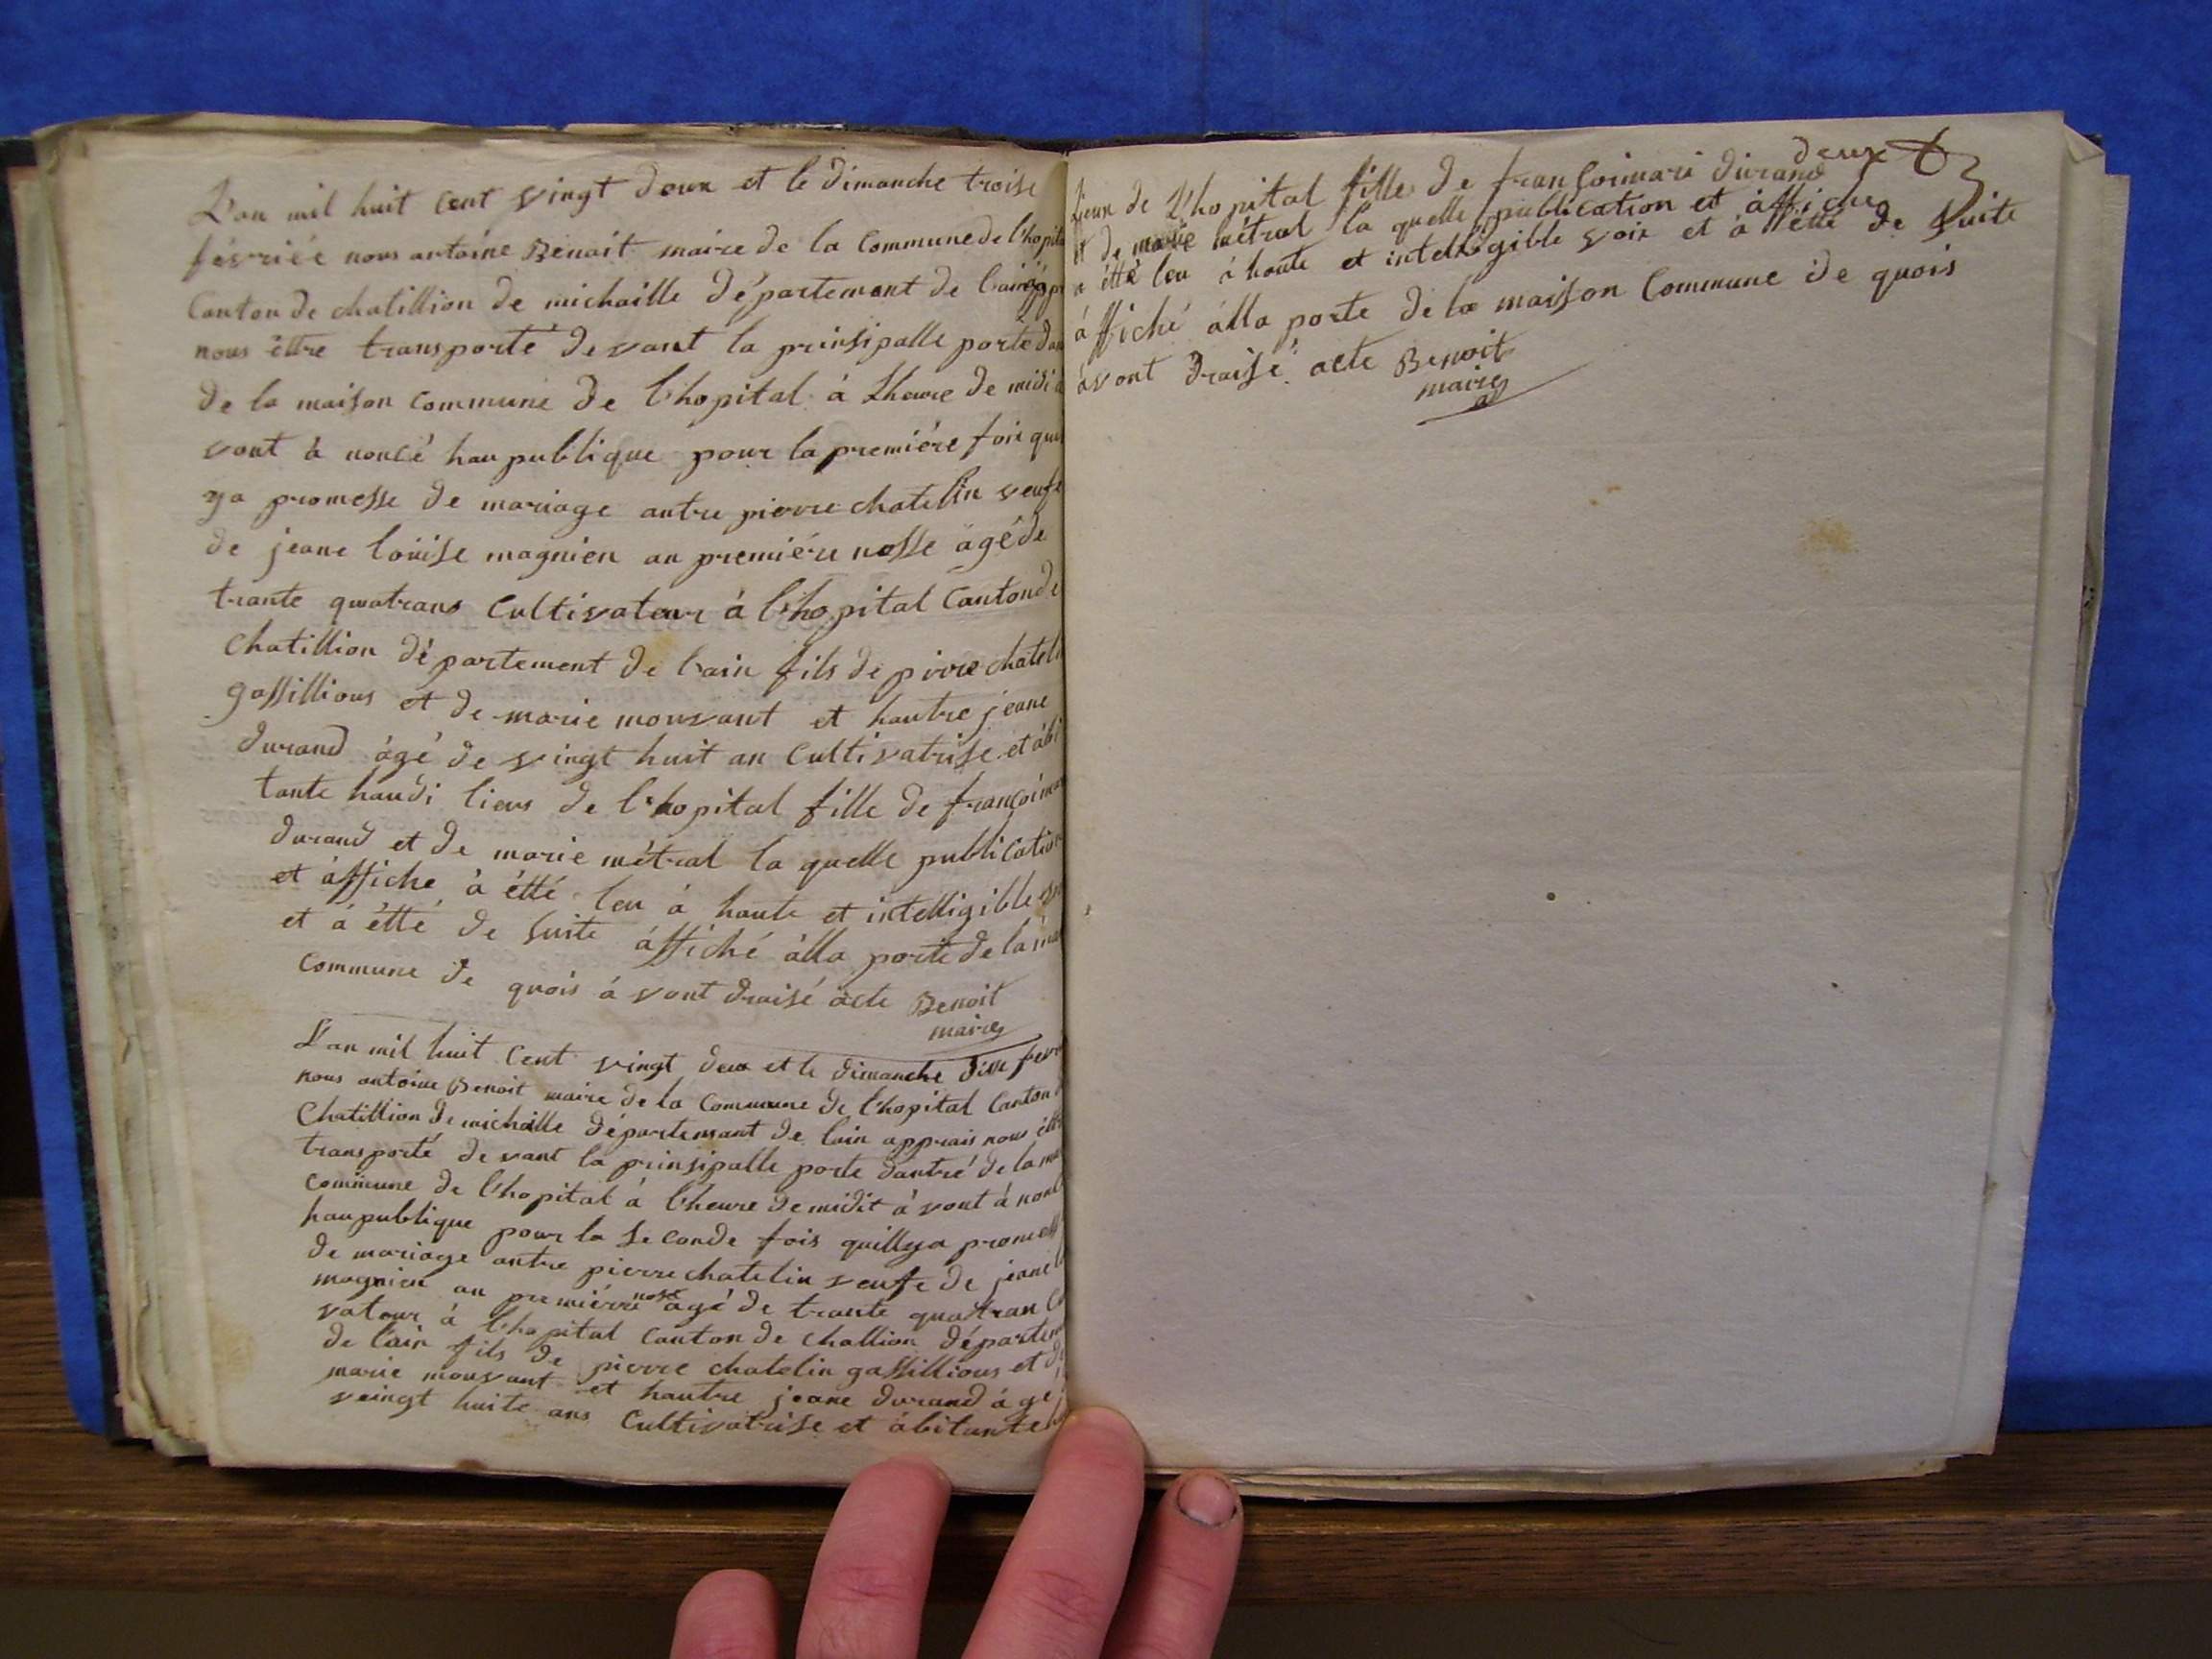 L'an mil huit Cent vingt deux et le dimanche troise
févriée nous antoine Benoit maire de la Commune de l'hopital
Canton de chatillion de michaille département de l'ain
nous ëttre transporté devant la prinsipalle porte
de la maison commune de l'hopital à Lheure de midi
vont à noncé hau publique pour la premiére foix
ya promesse de mariage antre pierre chatelin veufe
de jeane loüise magnien an premiére nosse agé de
trante quatrans Cultivateur à l'hopital Canton de
Chatillion département de l'ain fils de pierre chatelin
gassillious et de marie mouvant et hautre jeane
durand àgé de vingt huit an Cultivatrise et àbi
tante haudi lieus de l'hopital fille de françoi
durand et de marie métral la quelle publication
et àffiche à étté leu à haute et intelligible
et à étté de suite àffiché àlla porte de la
Commune de quois à vont draisé acte Benoit
maire
L'an mil huit Cent vingt deux et le dimanche dixe
nous antoine Benoit maire de la Commune de l'hopital Canton
Chatillion de michaille départemant de lain apprais nous
transporté devant la prinsipalle porte dantré de la
commune de l'hopital à l'heure de midit à vont à noncé
hau publique pour la seconde fois quillya promesse
de mariage antre pierre chatelin veufe de jeane
magnien an premiérre nosse agé de trante quattran
vateur à l'hopital Canton de Challion département
de l'ain fils de pierre chatelin gassillious et de
marie mouvant et hautre jeane durand àgé
veingt huite ans Cultivatrise et àbitante
deux
lieux de L'hopital fille de fransoimari durand
et de marie métral la quelle publication et àffiche
à étté leu à haute et intelligible voix et à étté de suite
àffiché àlla porte de la maison Commune de quois
àvont draisé acte Benoit
maire